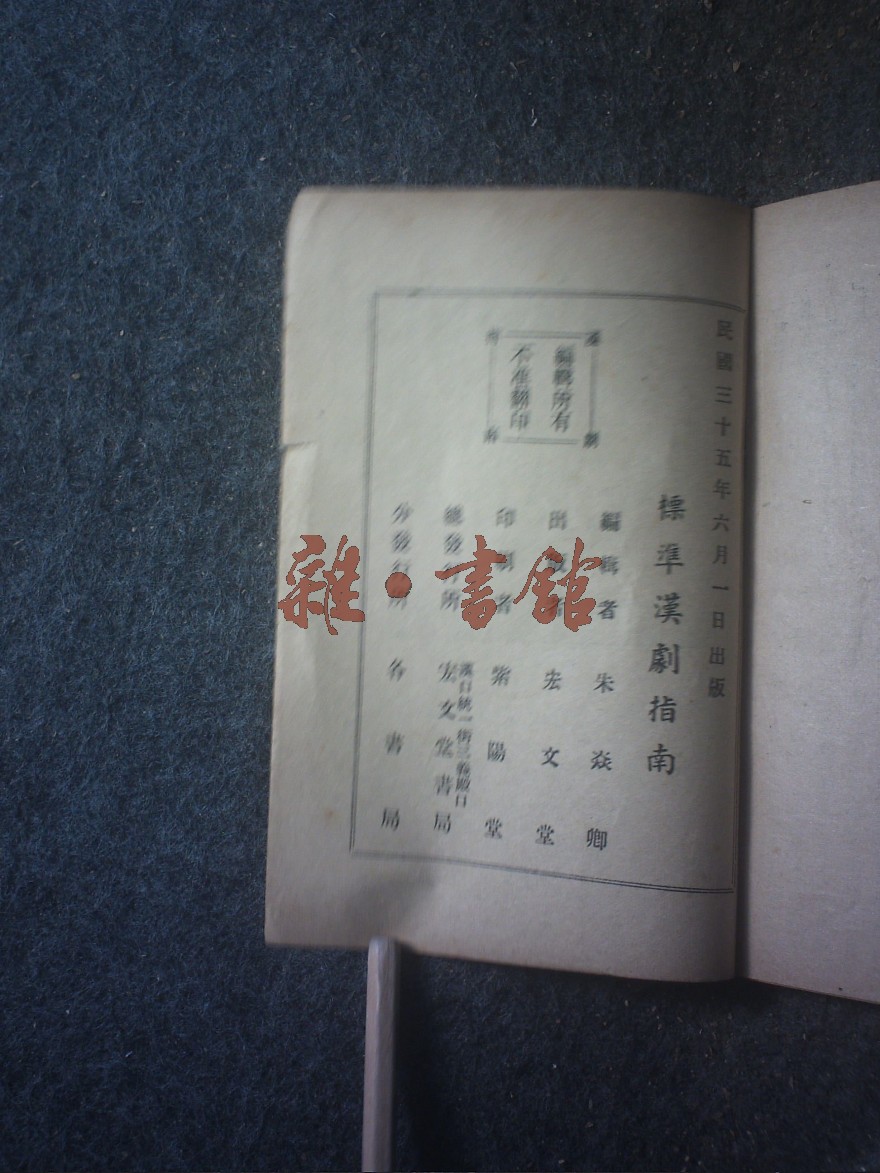 民國三十五年六月一日出版
標準漢劇指南
編輯者 朱焱卿
出版者 宏文堂
印刷者 紫陽堂
總發行所 漢口統一街三義殿口 宏文堂書局
分發行所 各書局
漢劇指南
編輯所有
不准翻印
雜·書館